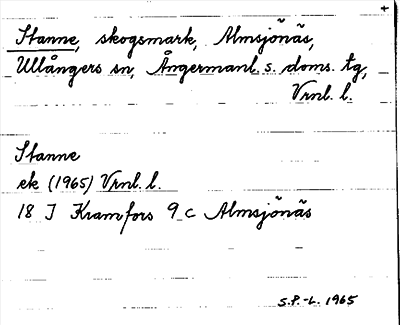 +
Stanne, skogsmark, Almsjönäs,
Ullångers sn, Ångermanl. s. doms. tg,
Vrnl. l.
Stanne
ek (1965) Vrnl. l.
18 J Kramfors 9 c Almsjönäs
S.P.-L. 1965